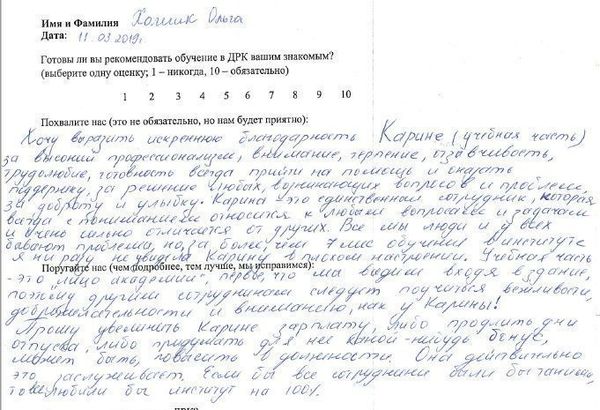 Имя и Фамилия Холик Ольга
Дата: 11.03.2019г.
Готовы ли вы рекомендовать обучение в ДРК вашим знакомым?
(выберите одну оценку; 1 – никогда, 10 – обязательно)
1 2 3 4 5 6 7 8 9 10
Похвалите нас (это не обязательно, но нам будет приятно):
Хочу выразить искреннюю благодарность Карине (учебная часть)
за высокий профессионализм, внимание, терпение, отзывчивость,
трудолюбие, готовность всегда прийти на помощь и оказать
поддержку, за решение любых, возникающих вопросов и проблем,
за доброту и улыбку. Карина - это единственный сотрудник, которая
всегда с пониманием относится к любым вопросам и задачам
и очень сильно отличается от других. Все мы люди и у всех
бывают проблемы, но, за более, чем 7 мес обучения в институте
я ни разу не увидела Карину в плохом настроении. Учебная часть
Поругайте нас (чем подробнее, тем лучше, мы исправимся):
- это "лицо академии", первое, что мы видим входя в здание,
поэтому другим сотрудникам следует поучиться вежливости,
доброжелательности и вниманию, как у Карины!
Прошу увеличить Карине зарплату, либо продлить дни
отпуска, либо придумать для неё какой-нибудь бонус,
может быть, повысить в должности. Она действительно
это заслуживает. Если бы все сотрудники были бы такими,
то все любили бы институт на 100%.